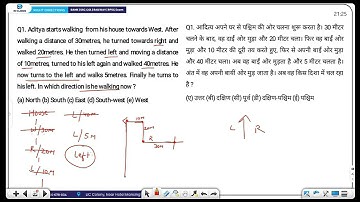 21:25
Q1. Aditya starts walking from his house towards West. After
walking a distance of 30metres, he turned towards right and
walked 20metres. He then turned left and moving a distance
of 10metres turned to his left again and walked 40metres. He
now turns to the left and walks 5metres. Finally he turns to
his left. In which direction is he walking now ?
(a) North (b) South (c) East (d) South-west (e) West
Q1. आदित्य अपने घर से पश्चिम की ओर चलना शुरू करता है। 30 मीटर
चलने के बाद, वह दाईं ओर मुड़ा और 20 मीटर चला। फिर वह बाईं ओर
मुड़ा और 10 मीटर की दूरी तय करते हुए, फिर से अपनी बाईं ओर मुड़ा
और 40 मीटर चला। अब वह बाईं ओर मुड़ता है और 5 मीटर चलता है।
अंत में वह अपनी बायीं ओर मुड़ जाता है। अब वह किस दिशा में चल रहा
है ?
(ए) उत्तर (बी) दक्षिण (सी) पूर्व (डी) दक्षिण-पश्चिम (ई) पश्चिम
House L/40m
W/30m L/5m
R/20m Left
L/10m
10m
20m
R
30m
L R